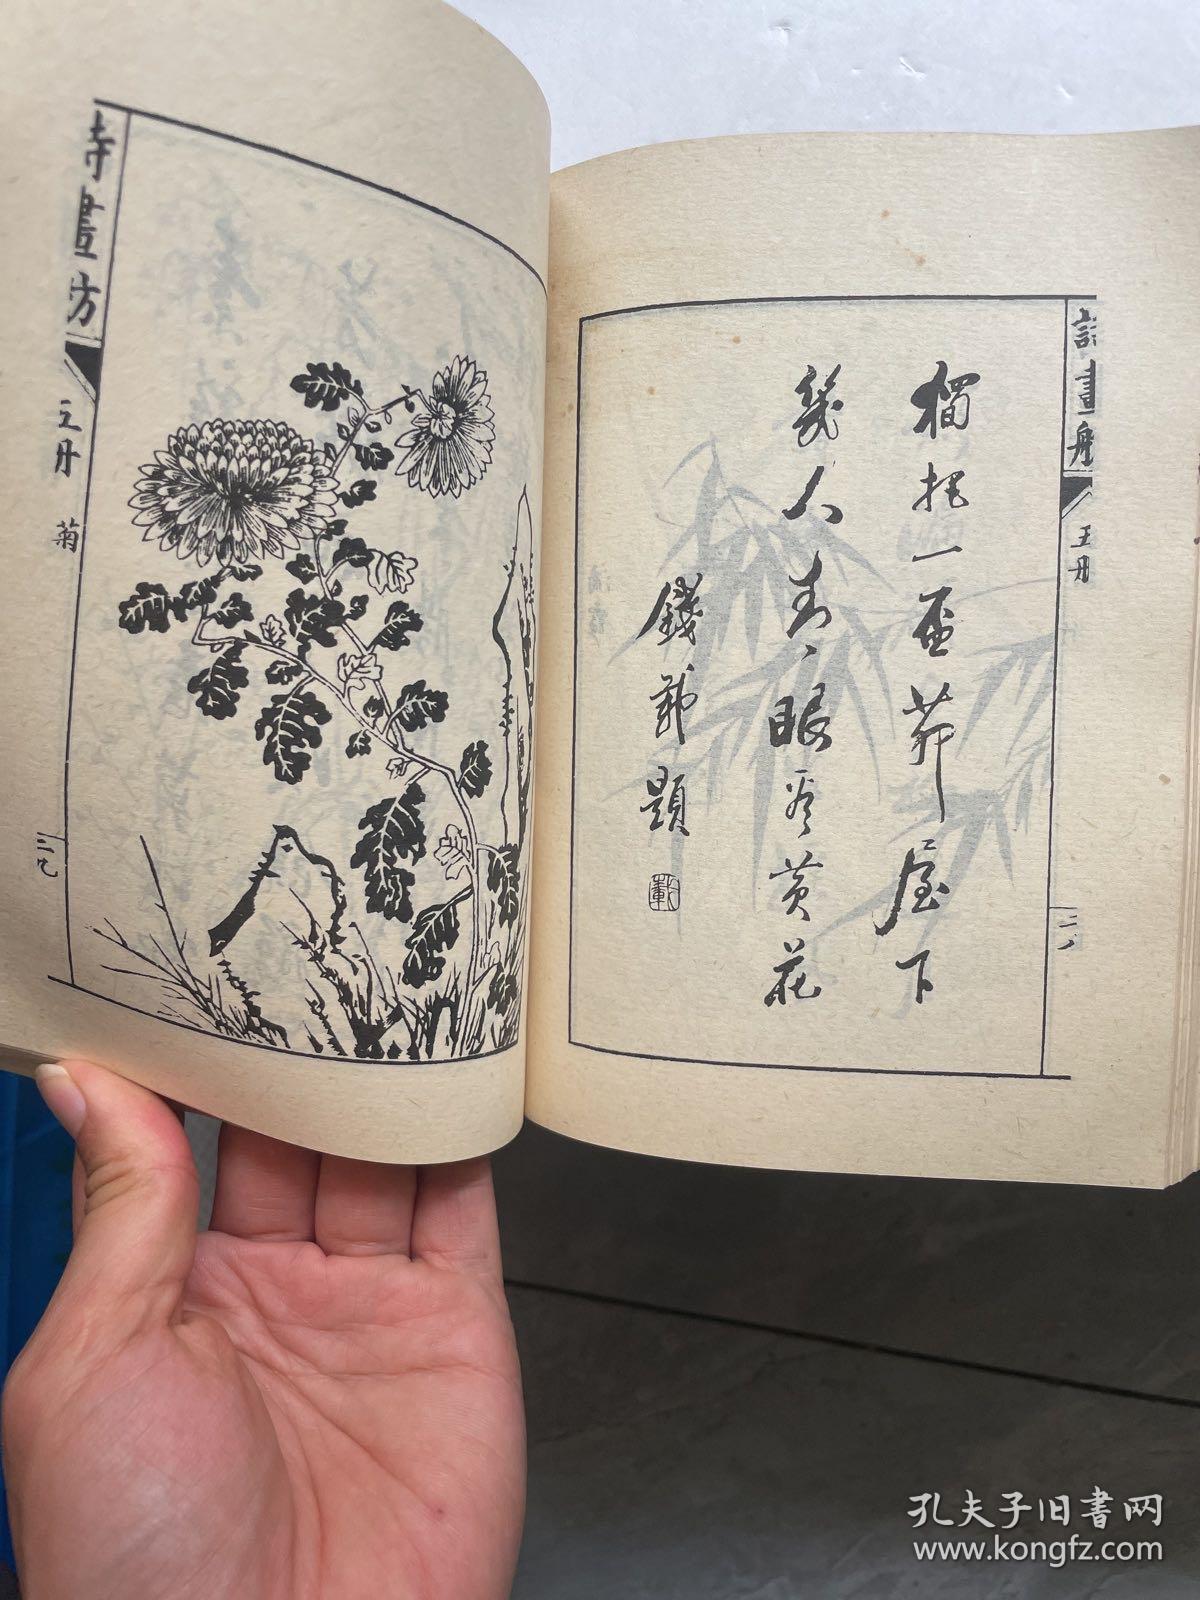 詩畫舫
五册
獨把一杯茅屋下
幾人青眼看黃花
錢載題
載
詩畫舫
五册
菊
二九
孔夫子旧书网
www.kongfz.com